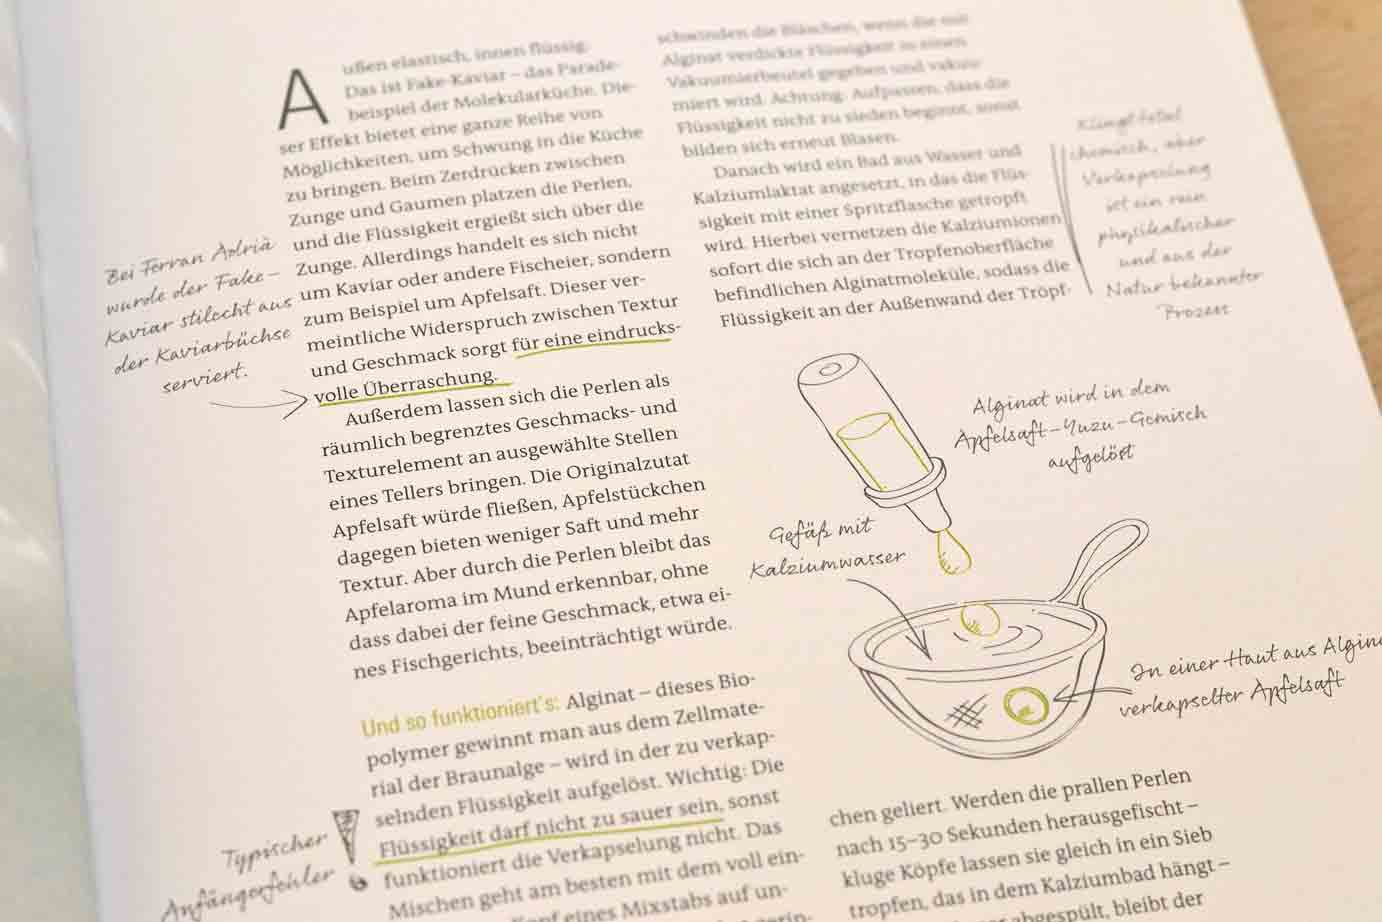 Außen elastisch, innen flüssig:
Das ist Fake-Kaviar – das Parade-
beispiel der Molekularküche. Die-
ser Effekt bietet eine ganze Reihe von
Möglichkeiten, um Schwung in die Küche
zu bringen. Beim Zerdrücken zwischen
Zunge und Gaumen platzen die Perlen,
und die Flüssigkeit ergießt sich über die
Zunge. Allerdings handelt es sich nicht
um Kaviar oder andere Fischeier, sondern
zum Beispiel um Apfelsaft. Dieser ver-
meintliche Widerspruch zwischen Textur
und Geschmack sorgt für eine eindrucks-
volle Überraschung.
Außerdem lassen sich die Perlen als
räumlich begrenztes Geschmacks- und
Texturelement an ausgewählte Stellen
eines Tellers bringen. Die Originalzutat
Apfelsaft würde fließen, Apfelstückchen
dagegen bieten weniger Saft und mehr
Textur. Aber durch die Perlen bleibt das
Apfelaroma im Mund erkennbar, ohne
dass dabei der feine Geschmack, etwa ei-
nes Fischgerichts, beeinträchtigt würde.
Und so funktioniert's: Alginat – dieses Bio-
polymer gewinnt man aus dem Zellmate-
rial der Braunalge – wird in der zu verkap-
selnden Flüssigkeit aufgelöst. Wichtig: Die
Flüssigkeit darf nicht zu sauer sein, sonst
funktioniert die Verkapselung nicht. Das
Mischen geht am besten mit dem voll ein-
Kopf eines Mixstabs auf un-
Bei Ferran Adrià
wurde der Fake-
Kaviar stilecht aus
der Kaviarbüchse
serviert.
Typischer
Anfängerfehler
schwinden die Bläschen, wenn die mit
Alginat verdickte Flüssigkeit in einen
Vakuumierbeutel gegeben und vakuu-
miert wird. Achtung: Aufpassen, dass die
Flüssigkeit nicht zu sieden beginnt, sonst
bilden sich erneut Blasen.
Danach wird ein Bad aus Wasser und
Kalziumlaktat angesetzt, in das die Flüs-
sigkeit mit einer Spritzflasche getropft
wird. Hierbei vernetzen die Kalziumionen
sofort die sich an der Tropfenoberfläche
befindlichen Alginatmoleküle, sodass die
Flüssigkeit an der Außenwand der Tröpf-
Klingt total
chemisch, aber
Verkapselung
ist ein rein
physikalischer
und aus der
Natur bekannter
Prozess
Alginat wird in dem
Apfelsaft-Yuzu-Gemisch
aufgelöst
Gefäß mit
Kalziumwasser
In einer Haut aus Algin
verkapselter Apfelsaft
chen geliert. Werden die prallen Perlen
nach 15–30 Sekunden herausgefischt –
kluge Köpfe lassen sie gleich in ein Sieb
tropfen, das in dem Kalziumbad hängt –
abgespült, bleibt der